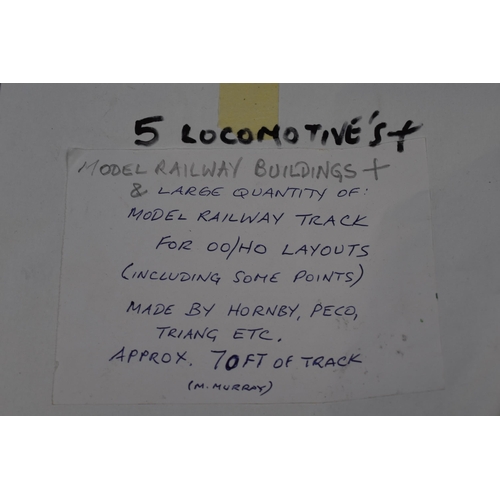 5 LOCOMOTIVE'S +
MODEL RAILWAY BUILDINGS +
& LARGE QUANTITY OF:
MODEL RAILWAY TRACK
FOR OO/HO LAYOUTS
(INCLUDING SOME POINTS)
MADE BY HORNBY, PECO,
TRIANG ETC.
APPROX. 70FT OF TRACK
(M. MURRAY)